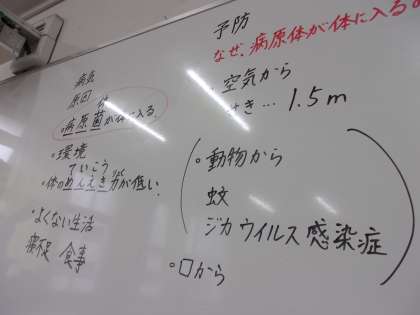 病気
原因 体
・病原菌が体に入る。
・環境
ていこう
・体のめんえき力が低い
・よくない生活
寝不足 食事
予防
なぜ、病原体が体に入る
・空気から
せき… 1.5m
・動物から
蚊
ジカウイルス感染症
・口から